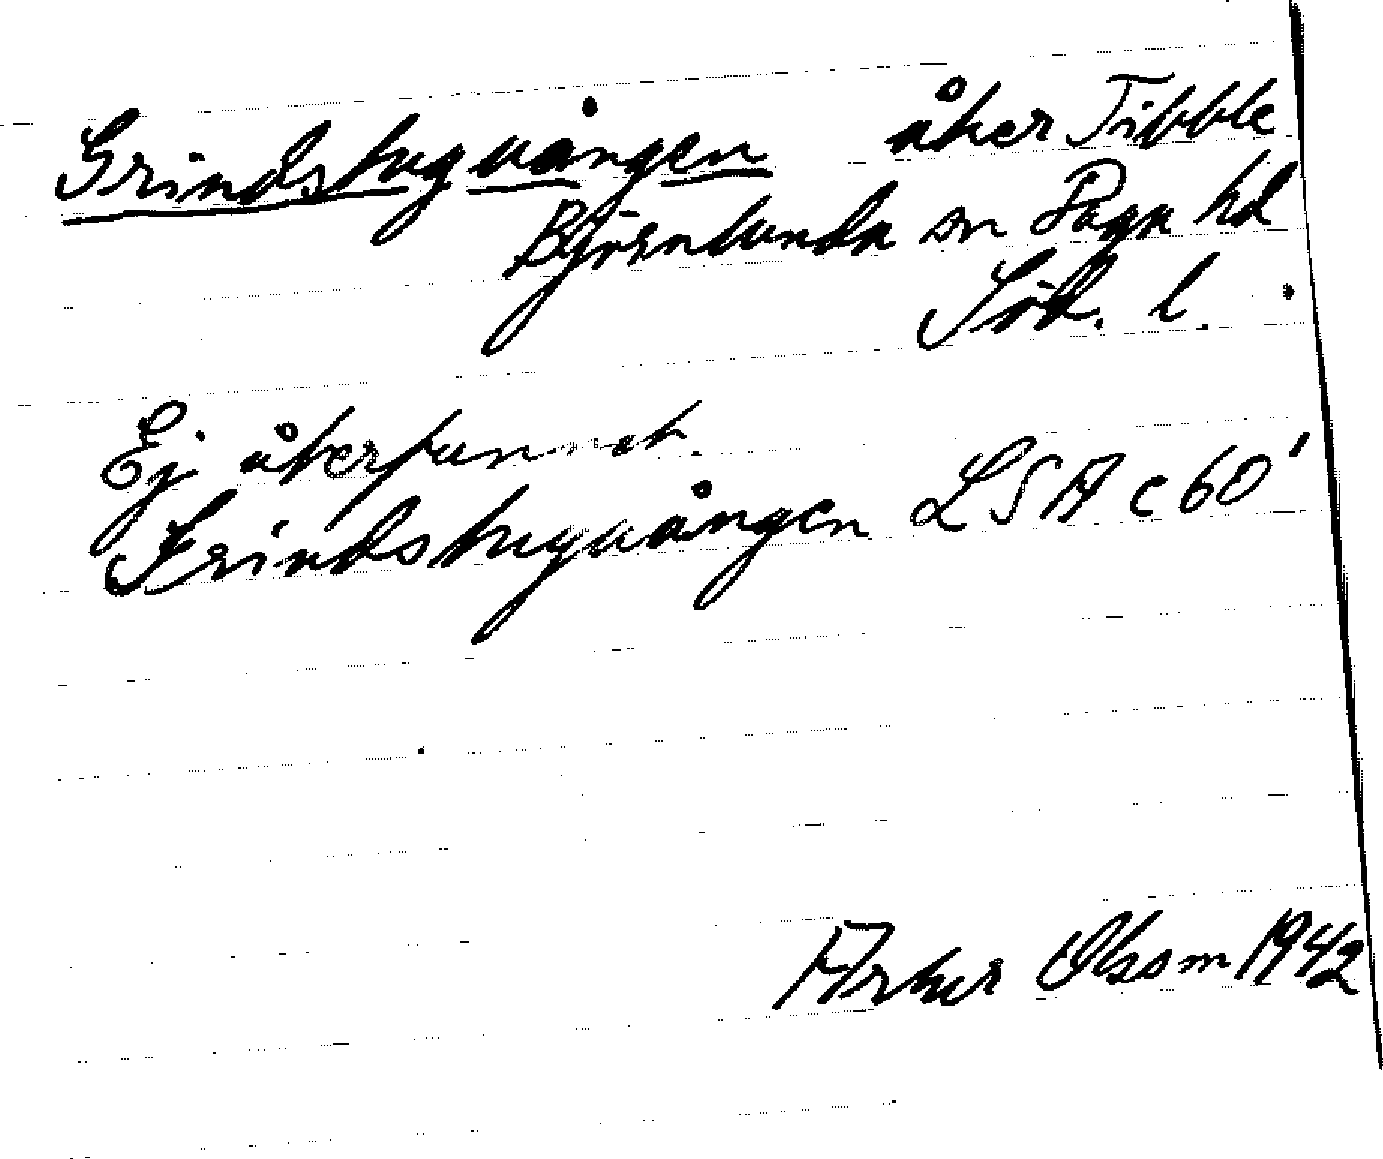 Grindstugvången åker Tibble
Björnlunda sn Daga hd
Söd. l.
Ej återfunnet.
Grindstugvången LSA c 60'
Arthur Olsson 1942